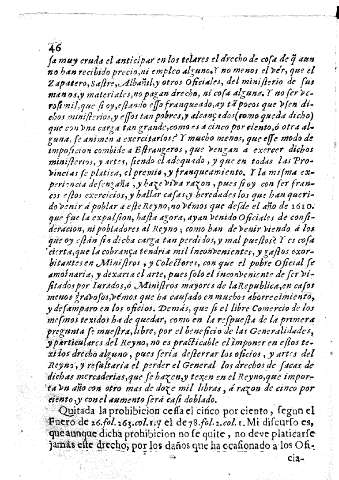 46
sa muy cruda el anticipar en los telares el drecho de cosa de q̃ aun
no han recibido precio, ni empleo alguno. Y no menos el vér, que el
Zapatero, Sastre, Albañil, y otros Oficiales, del ministerio de sus
manos, y materiales, no pagan drecho, ni cosa alguna. Y no ser ve-
rosimil, que si oy, estando esso franqueado, ay tã pocos que vsen di-
chos ministerios, y essos tan pobres, y alcançados (como queda dicho)
que con vna carga tan grande, como es a cinco por ciento, ò otra al-
guna, se animen a exercitarlos? Y mucho menos, que esse modo de
imposicion combide a Estrangeros, que vengan a exercer dichos
ministerios, y artes, siendo el adequado, y que en todas las Pro-
vincias se platica, el premio, y franqueamiento. Y la mesma ex-
periencia desengaña, y haze viva razon, pues si oy con ser fran-
cos estos exercicios, y hallar casas, y heredades los que han queri-
do venir à poblar a este Reyno, no vemos que desde el año de 1610.
que fue la expulsion, hasta agora, ayan venido Oficiales de consi-
deracion, ni pobladores al Reyno, como han de venir viendo à los
que oy están sin dicha carga tan perdidos, y mal puestos? Y es cosa
cierta, que la cobrança tendria mil inconvenientes, y gastos exor-
bitantes en Ministros, y Colectores, con que el pobre Oficial se
amoinaria, y dexaria el arte, pues solo el inconveniente de ser vi-
sitados por Iurados, ò Ministros mayores de la Republica, en casos
menos gravosos, vémos que ha causado en muchos aborrecimiento,
y desamparo en los oficios. Demás, que si el libre Comercio de los
mesmos texidos ha de quedar, como en la respuesta de la primera
pregunta se muestra, libre, por el beneficio de las Generalidades,
y particulares del Reyno, no es practicable el imponer en estos te-
xidos drecho alguno, pues seria desterrar los oficios, y artes del
Reyno, y resultaria el perder el General los drechos de sacas de
dichas mercaderias, que se hazen, y texen en el Reyno, que impor-
ta vn año con otro mas de doze mil libras, à razon de cinco por
ciento, y con el aumento será casi doblado.
Quitada la prohibicion cessa el cinco por ciento, segun el
Fuero de 26. fol. 263. col. 1. y el de 78. fol. 2. col. 1. Mi discurso es,
que aunque dicha prohibicion no se quite, no deve platicarse
jamás este drecho, por los daños que ha ocasionado a los Ofi-
cia-